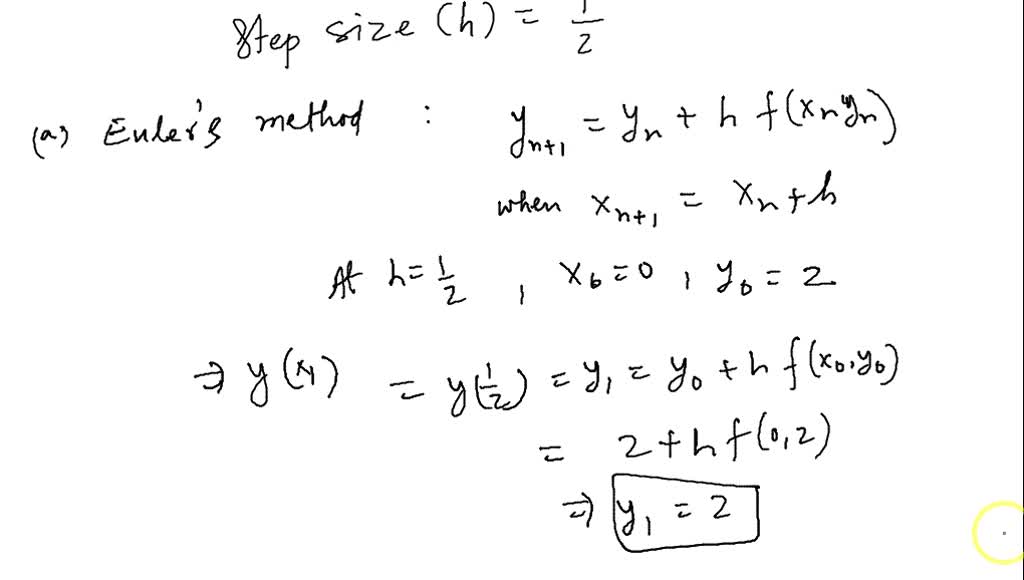 Step size (h) = 1/2
(a) Euler's method : yₙ₊₁ = yₙ + h f(xₙ,yₙ)
when xₙ₊₁ = xₙ + h
At h = 1/2 , x₀ = 0 , y₀ = 2
⇒ y(x₁) = y(1/2) = y₁ = y₀ + h f(x₀,y₀)
= 2 + h f(0,2)
⇒ y₁ = 2